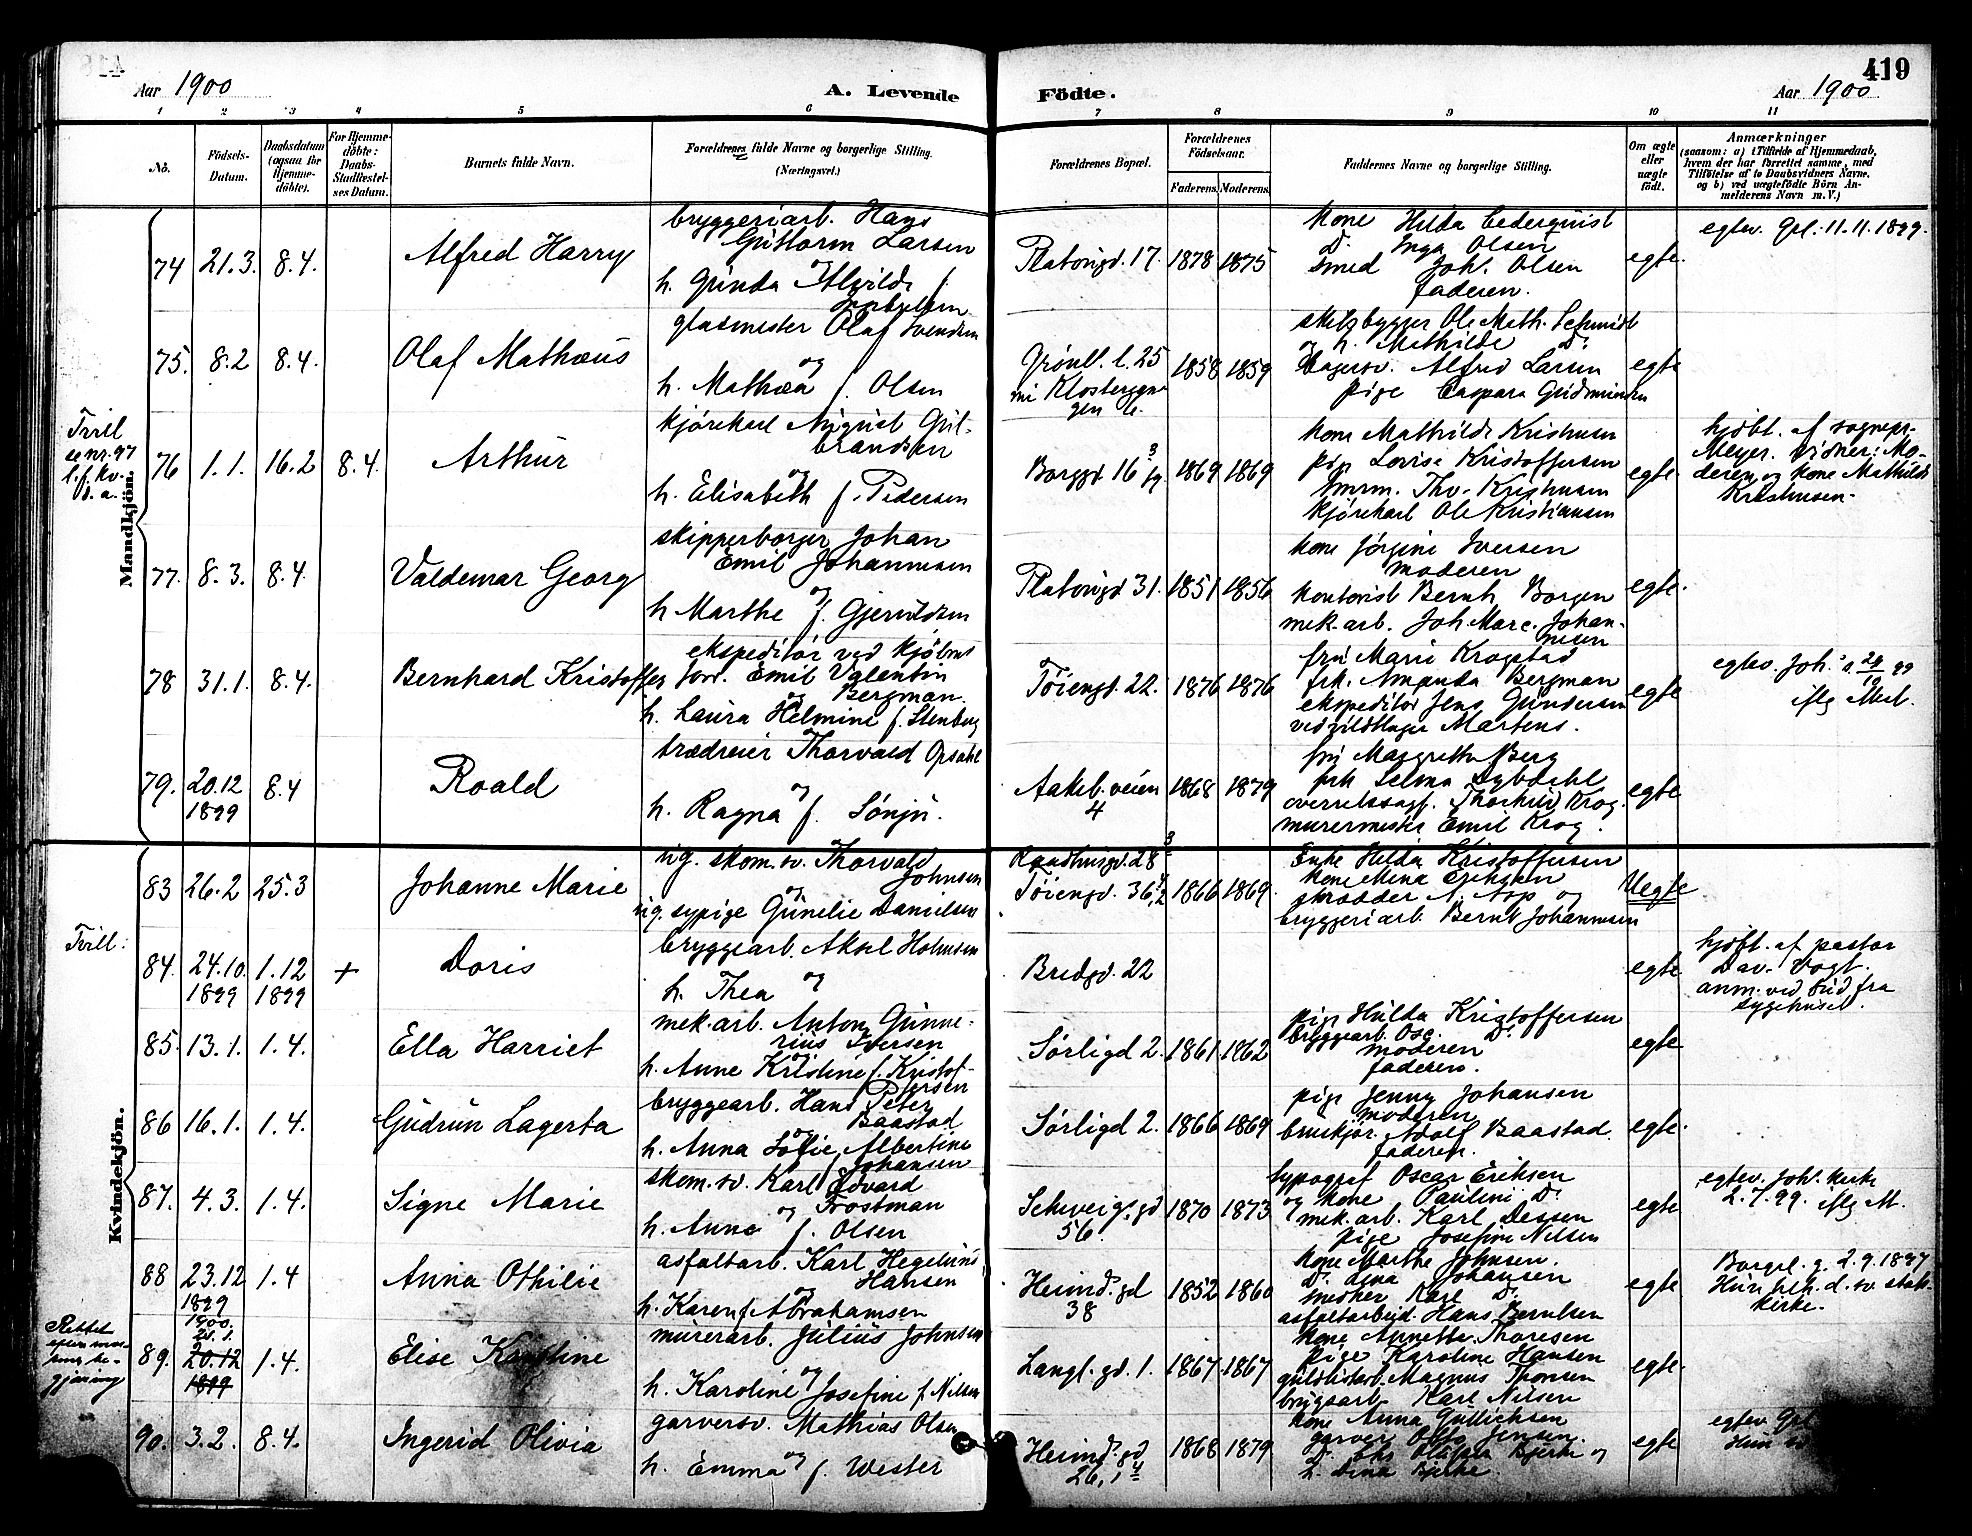 Aar 1900
A. Levende
Födte.
419
Aar 1900
1 2 3 4 5 6 7 8 9 10 11
No.
Födsels-
Datum.
Daabsdatum
(ogsaa for
Hjemme-
döbte).
For Hjemme-
döbte:
Daabs-
Stadfæstel-
ses Datum.
Barnets fulde Navn.
Forældrenes fulde Navne og borgerlige Stilling.
(Næringsvei.)
Forældrenes Bopæl.
Forældrenes
Födselsaar.
Faderens. Moderens.
Faddernes Navne og borgerlige Stilling.
Om ægte
eller
uægte
födt.
Anmærkninger
(saasom: a) i Tilfælde af Hjemmedaab,
hvem der har forrettet samme, med
Tilföielse af to Daabsvidners Navne.
og b) ved uægtefödte Börn An-
melderens Navn m.V.)
Mandkjön.
74 21.3. 8.4.
Alfred Harry
bryggeriarb. Hans
Guttorm Larsen
og
h. Gunda Alvilde f.
Platougd. 17. 1878 1875
kone Hilda Cederquist
D. Inga Olsen
smed Joh. Olsen
faderen.
egte.
egtev. Grl. 11.11.1899.
75. 8.2 8.4.
Olaf Mathæus
glasmester Olaf Svendsen
og
h. Mathæa f. Olsen
Grønl. l. 25
1858 1859
Ole Math. Schmidt
og h. Mathilde D.
Alfred Larsen
pige Caspara Gudmundsen
egte
Tvill
se nr. 97
l. f. kv.
d. a.
76 1.1. 16.2 8.4.
Arthur
kjørekarl August Gul-
brandsen
og
h. Elisabeth f. Pedersen
Borggd 16 1869 1869
kone Mathilde Kristiansen
pige Lovise Kristoffersen
tmrm. Thv. Kristiansen
kjørekarl Ole Kristiansen
egte
hjdbt. af sognepr.
Meyer. Vidner: Mo-
deren og kone Mathilde
Kristiansen.
77. 8.3. 8.4.
Valdemar Georg
skipperborger Johan
Emil Johannesen
og
h Marthe f. Gjeruldsen
Platougd 31. 1851 1856
kone Jörgine Iversen
moderen
kontorist Bernh Borgen
mek. arb. Joh. Marc. Johan-
nesen
egte.
78 31.1. 8.4.
Bernhard Kristoffer
ekspeditör ved kjöbm.
forr. Emil Valentin
og Bergman.
h. Laura Helmine f. Stenberg
Töiengd. 22. 1876 1876
fru Marie Krogstad
frk. Amanda Bergman
ekspeditör Jens Gundersen
Martens.
egte
egtev. Joh. 99
iflg Attest.
79. 20.12 8.4
1899
Roald
trædreier Thorvald Opsahl
og
h. Ragna f. Sönju.
Aakeb. veien
4
1868 1879
fru Margrethe Berg
frk Selma Dybdahl
overretssagf. Krog.
murermester Emil Krog.
egte
Kvindekjön.
83 26.2 25.3
Johanne Marie
ug. skom. sv. Thorvald
Johnsen
og
ug. sypige Gunelie Danielsen
Raadhusgd. 28
Töiengd. 36
1866 1869.
Enke Hilda Kristoffersen
kone Mina Eriksen
skrædder A. Asp og
bryggeriarb. Bernt Johannesen
Uegte
Tvill:
84. 24.10. 1.12 +
1899 1899
Doris
bryggearb. Aksel Holmsen
og
h. Thea
Bredgd. 22
egte
hjdbt. af pastor
Dav. Vogt.
anm. ved bud fra
sygehuset.
85. 13.1. 1.4.
Ella Harriet
mek. arb. Anton Gunne-
rius Iversen
og
h. Anne Kristine f. Kristof-
fersen
Sörligd 2. 1861 1862
pige Hulda Kristoffersen
bryggearb. Osc. D.
moderen
faderen.
egte
86 16.1. 1.4.
Gudrun Lagerta
bryggearb. Hans Peter
Baastad
og
h. Anna Sofie Albertine
f. Johansen
Sörligd 2. 1866 1869
pige Jenny Johansen
moderen
Adolf Baastad.
faderen.
egte.
87. 4.3. 1.4.
Signe Marie
skom. sv. Karl Edvard
og Frostman
h. Anne f. Olsen
Schweig. gd
56
1870 1873
typograf Oscar Eriksen
og kone Pauline D.
mek. arb. Karl Dessen
pige Josefine Nilsen
egte
egtev. Joh. kirke
2.7.99. iflg A.
88 23.12 1.4
1899
Anna Othilie
asfaltarb. Karl Hegelund
Hansen
og
h. Karen f. Abrahamsen
Heimd. gd
38
1852 1860
kone Marthe Johnsen.
D. Lina Johansen
Karl D.
asfaltarbeid. Hans Berntsen
egte
Borgl. g. 2.9.1897
Hun beh. d. sv. stats-
kirke.
Rettet
89. 1900.
20.12 1.4.
1899
Elise Karoline
murerarb. Julius Johnsen
og
h. Karoline Josefine f. Nilsen
Langl. gd. 1. 1867 1867
kone Annette Thoresen
pige Karoline Hansen
Magnus Thomsen
brygearb. Karl Nilsen
egte.
90. 3.2. 8.4.
Ingerid Olivia
garversv. Mathias Olsen
og
h. Emma f. Wester
Heimd. gd
26,
1868 1879
kone Anna Gullichsen
garver Otto Jensen.
Bjerke og
h. Dina Bjerke.
egte
egtev. Grl
Hun